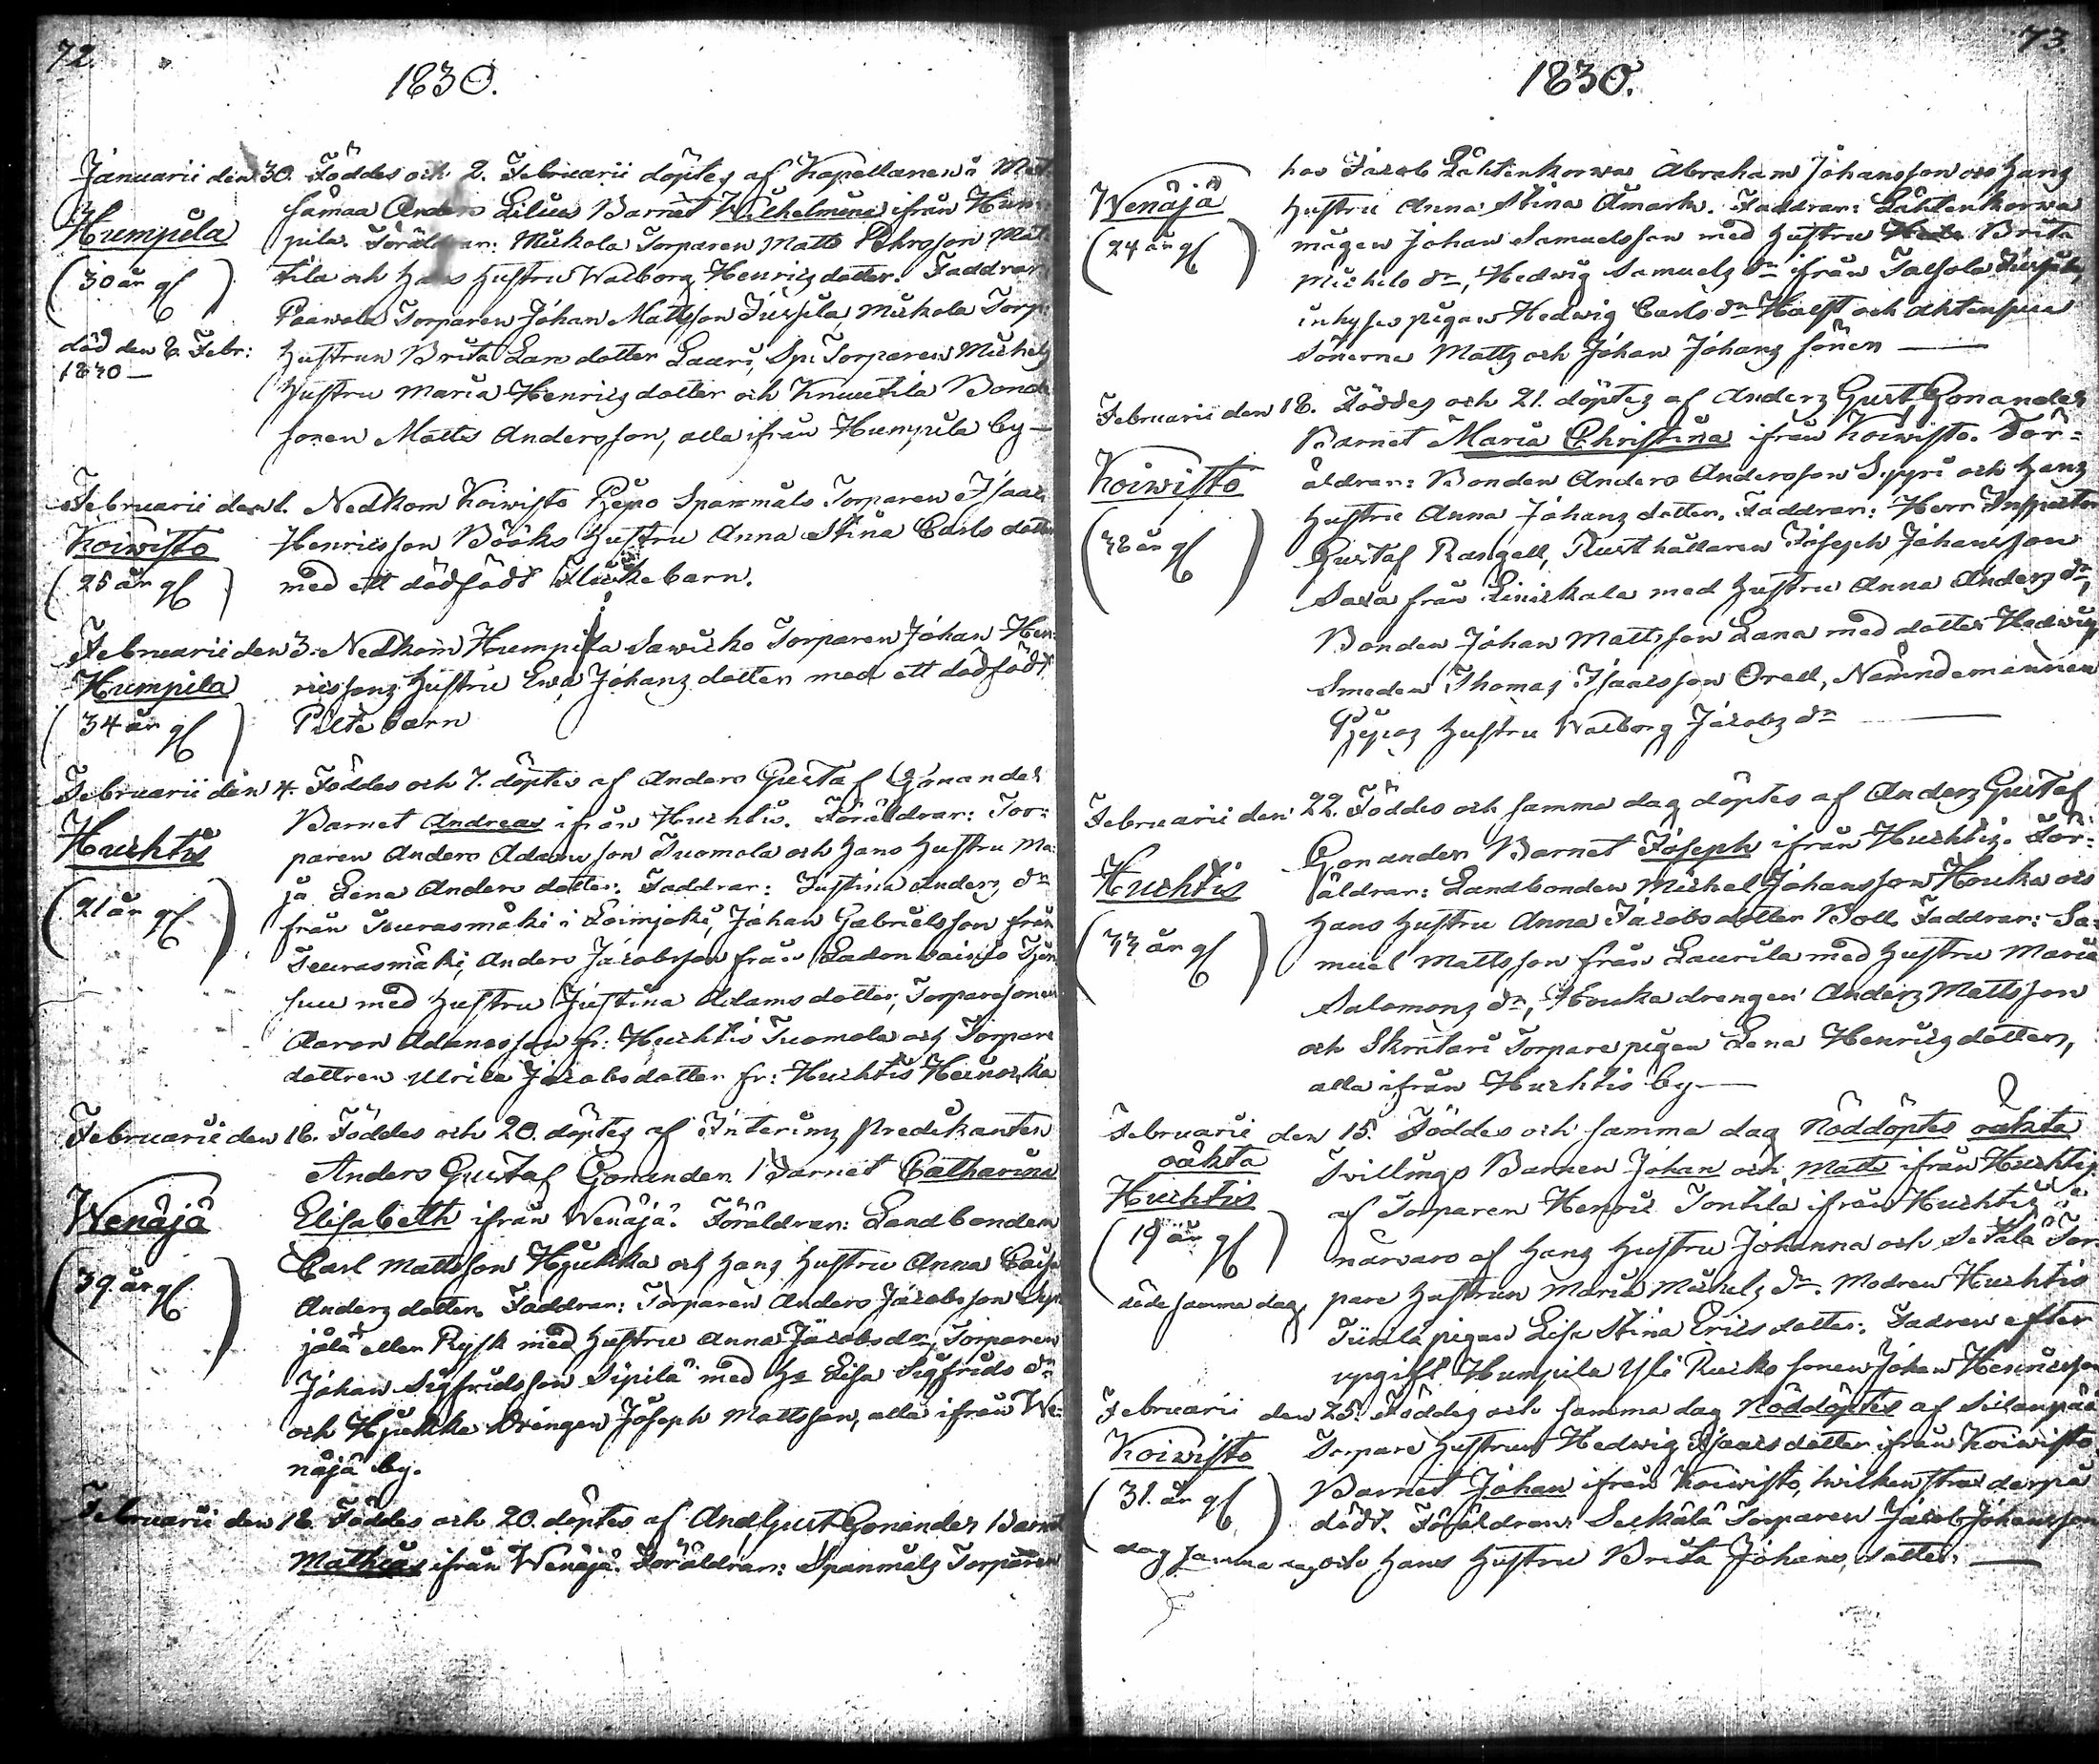 72.
1830.
Januarii den 30. Föddes och 2. Februarii döptes af Kapellanen i
samaa Anders Lilius Barnet Wilhelmina ifrån Hum-
Humpila
pila. Föräldrar: Mickola Torparen Matts
(30 år gl)
tila och Hans Hustru Walborg Henricsdotter. Faddrar:
Paawola Torparen Johan Mattsson Jussila, Mickola Torp
död den 8. Febr:
1830 —
Hustrun Brita Lars dotter Spi Torparen Michels
Hustru Maria Henricsdotter och Knuutila Bonde
sonen Matts Andersson, alla ifrån Humpila by —
Februarii den 1. Nedkom Koiwisto Pepo Spanmåls Torparen Isaac
Koiwisto
Henricsson Bööks Hustru Anna Stina Carls dotter
(25 år gl)
med ett dödfödt Flickebarn.
Februarii den 3. Nedkom Humpila Torparen Johan Hen-
Humpila
ricssons Hustru Ewa Johans dotter med ett dödfödt
(34 år gl)
Piltebarn
Februarii den 4. Föddes och 7. döptes af Anders Gustaf Gonander
Barnet Andreas ifrån Huchtis. Föräldrar: Tor-
Huchtis
paren Anders Adamsson Tuomola och Hans Hustru Ma-
(21 år gl)
ja Lena Anders dotter. Faddrar: Justina Anders dr
från Seurasmäki i Loimjoki, Johan Gabrielsson från
Seurasmäki, Anders Jacobsson från
suu med Hustru Justina Adams dotter, Torparesonen
Aaron Adamsson fr: Huchtis Tuomola och Torpare
dottren Ulrica Jacobsdotter fr: Huchtis
Februarii den 16. Föddes och 20. döptes af Interims Predikanten
Anders Gustaf Gonander Barnet Catharina
Wenäjä
Elisabeth ifrån Wenäjä. Föräldrar: Landbonden
(39 år gl)
Carl Mattsson Hyukka och Hans Hustru Anna Caisa
Anders dotter. Faddrar: Torparen Anders Jacobsson
jälä eller Rysk med Hustru Anna Jacobs dr, Torparen
Johan Sigfridsson Sipilä med H. Lisa Sigfrids dr
och Hyukka Drängen Joseph Mattsson, alla ifrån We-
näjä by.
Februarii den 18. Föddes och 20. döptes af And Gust Gonander Barnet
Mathias ifrån Wenäjä. Föräldrar: Spanmåls Torparen
73.
1830.
hos Jacob Lähtenkorwa Abraham Johansson och Hans
Wenäjä
Hustru Anna Stina Amark. Faddrar: Lähtenkorwa
(24 år gl)
mågen Johan Samuelsson med Hustru Brita
Michels dr, Hedwig Samuels dr ifrån
inhyses pigan Hedwig Carls dr och
sönerne Matts och Johan Johans söner —
Februarii den 18. Föddes och 21. döptes af Anders Gust Gonander
Barnet Maria Christina ifrån Koiwisto. För-
Koiwisto
äldrar: Bonden Anders Andersson Seppri och Hans
(38 år gl)
Hustru Anna Johans dotter. Faddrar: Herr Inspector
Gustaf Rangell, Rusthållaren Joseph Johansson
från med Hustru Anna Anders dr,
Bonden Johan Mattsson Lana med dotter Hedwig
Smeden Thomas Isaacsson Orell, Nämndemannen
Hustru Walborg Jacobs dr —
Februarii den 22. Föddes och samma dag döptes af Anders Gustaf
Gonander Barnet Joseph ifrån Huchtis. För-
Huchtis
äldrar: Landbonden Michel Johansson Houka och
(33 år gl)
Hans Hustru Anna Jacobsdotter Boll. Faddrar: Sa-
muel Mattsson från Laurila med Hustru Maria
Salomons dr, Houka drengen Anders Mattsson
och Skräteri Torpare pigan Lena Henricsdotter,
alla ifrån Huchtis by —
Februarii den 15. Föddes och samma dag Nöddöptes oäkta
oäkta
Tvillings Barnen Johan och Matts ifrån Huchtis
Huchtis
af Torparen Henric Tontila ifrån Huchtis i
(19 år gl)
närvaro af Hans Hustru Johanna och Setälä Tor-
döde samma dag
pare Hustrun Maria Michels dr. Modren Huchtis
pigan Lisa Stina Erics dotter. Fadren efter
uppgift Humpila Yli Rucko sonen Johan Henricsson
Februarii den 25. Föddes och samma dag Nöddöptes af
Koiwisto
Torpare Hustrun Hedwig Isaacs dotter ifrån Koiwisto
(31. år gl)
Barnet Johan ifrån Koiwisto, hvilken strax derpå
dödt. Föräldrar: Torparen Jacob Johansson
dog samma dag
och Hans Hustru Brita Johans dotter. —